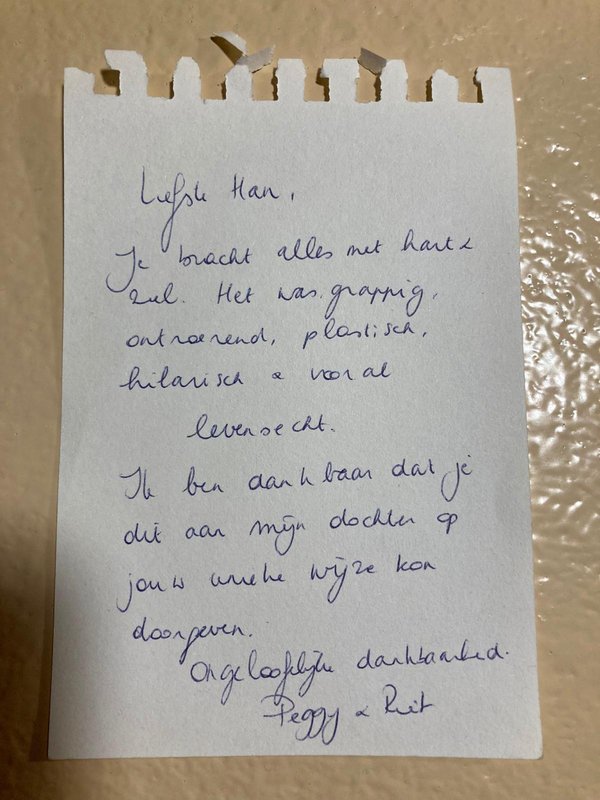 Liefste Han,
Je bracht alles met hart &
ziel. Het was grappig,
ontroerend, plastisch,
hilarisch & vooral
levensecht.
Ik ben dankbaar dat je
dit aan mijn dochter op
jouw unieke wijze kon
doorgeven.
Ongelooflijke dankbaarheid.
Peggy &